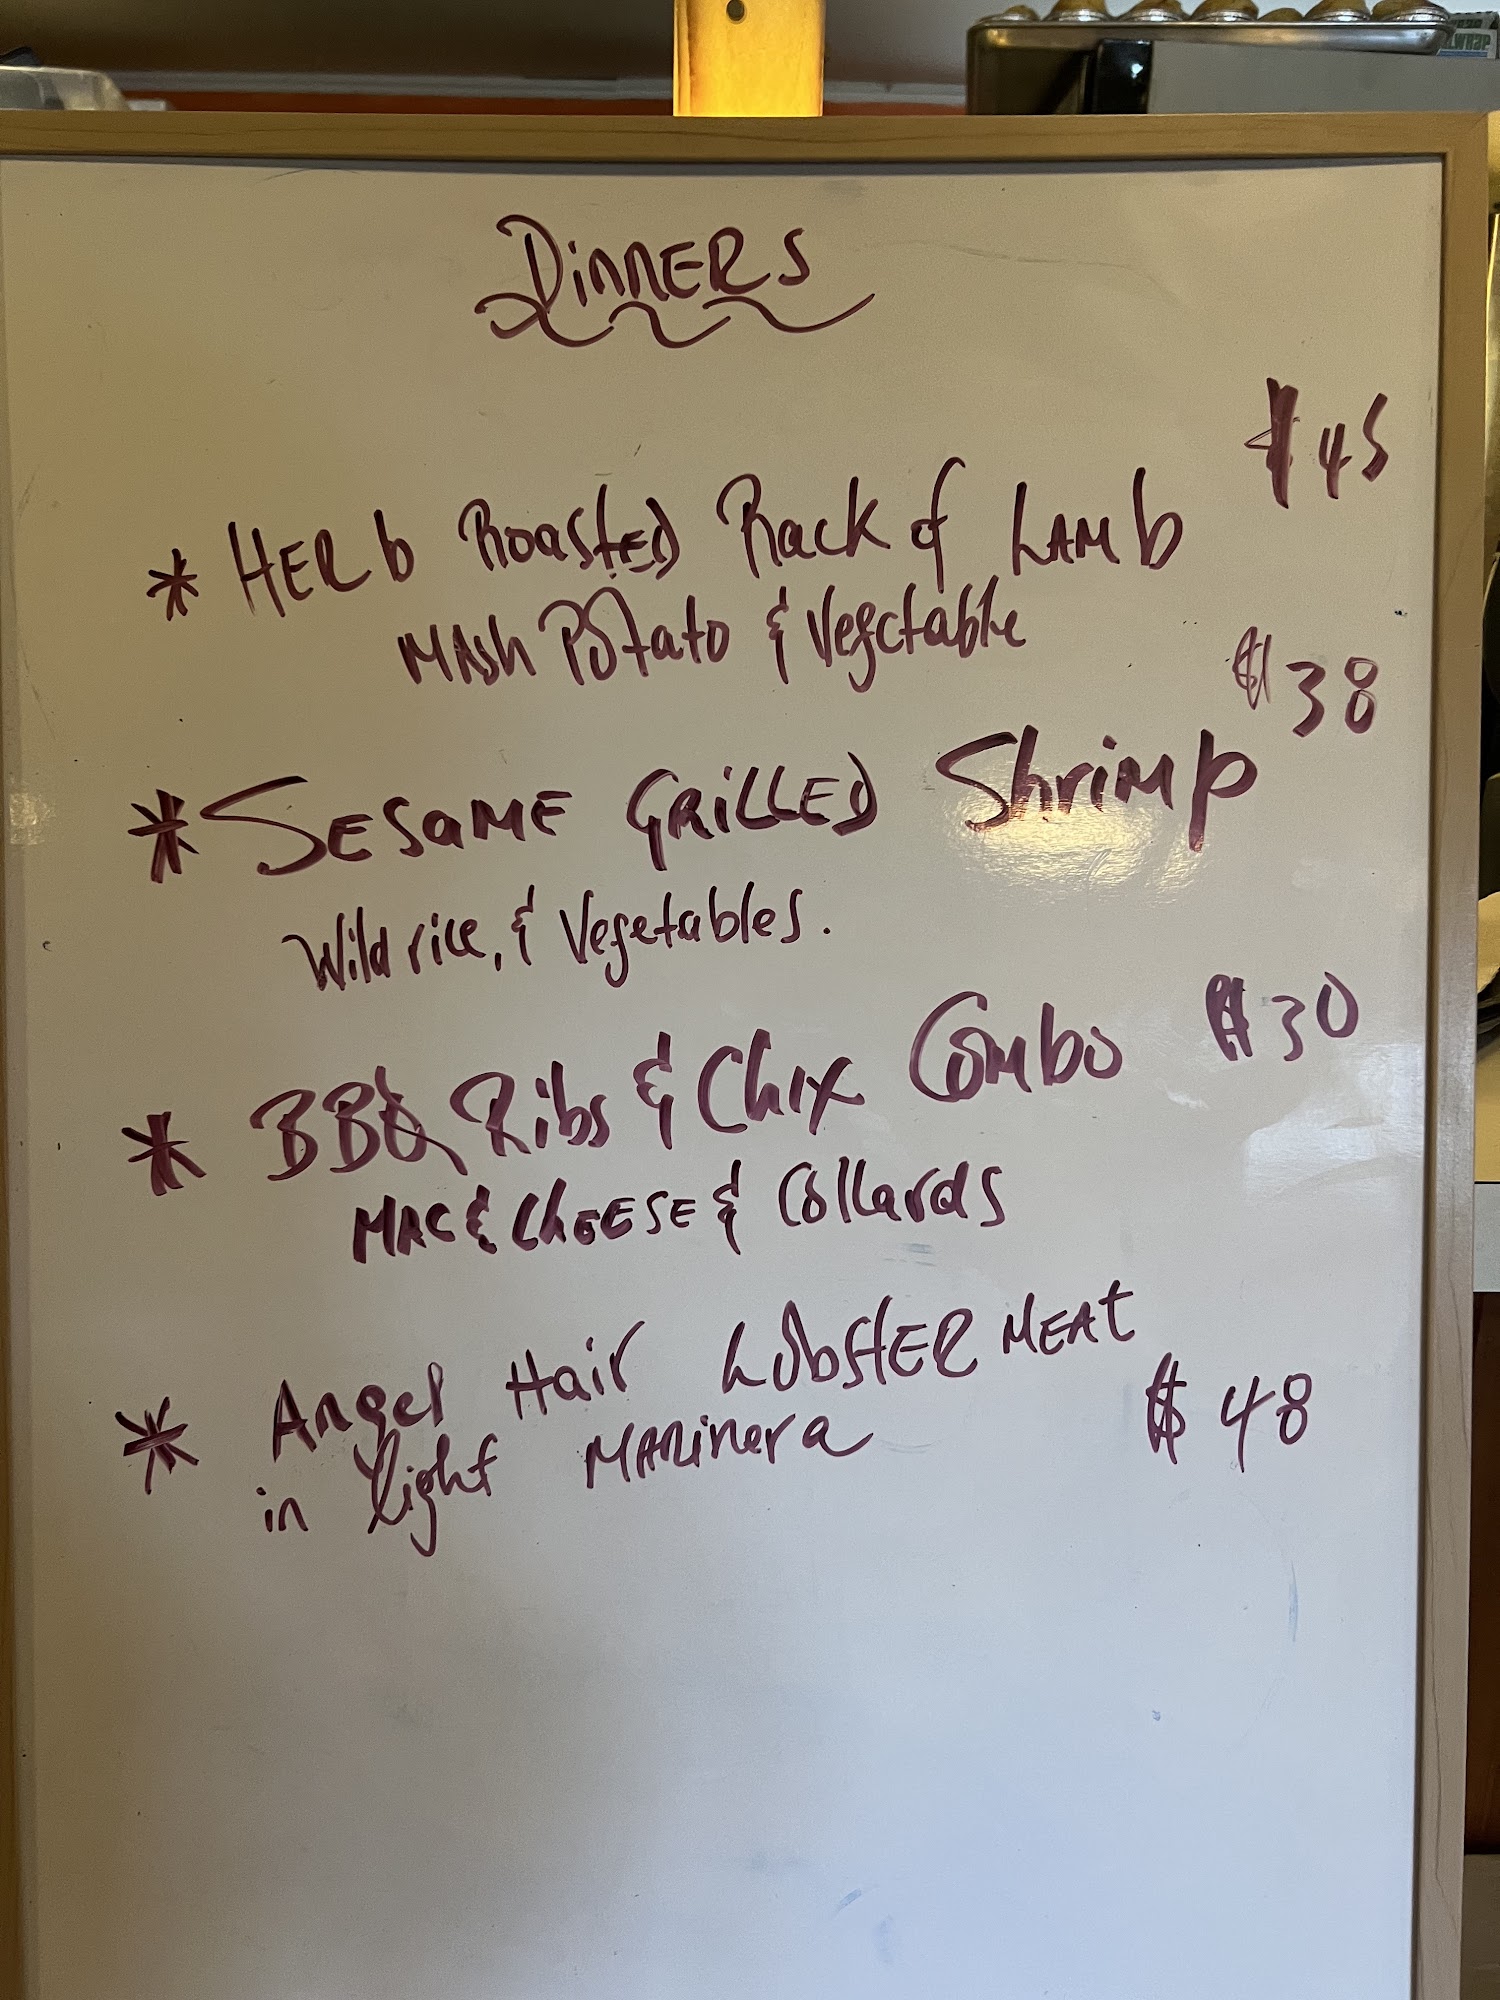 DinnERS
$45
* HERb RoastED Rack of LAMb
MAsh POtato & Vegetable
$38
* SESaME GRiLLED ShriMp
Wild rice, & Vegetables.
* BBQ Ribs & Chix Combo $30
MAC & ChEESE & Collards
* Angel Hair LobstER MEAt
in light MARinera $48